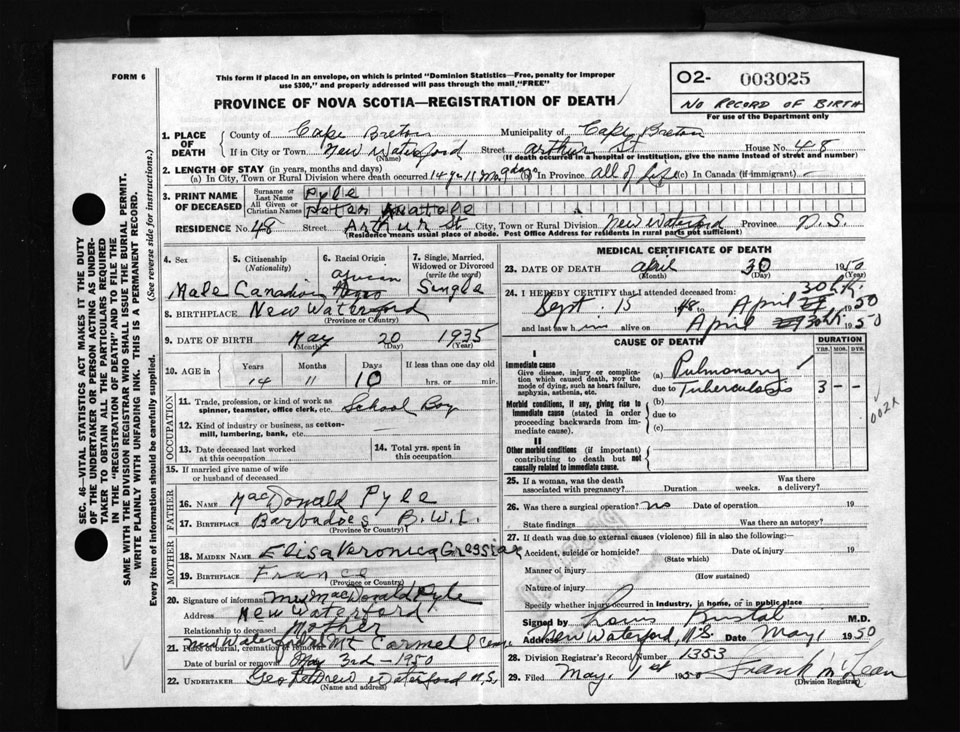 FORM 6
This form if placed in an envelope, on which is printed "Dominion Statistics—Free, penalty for improper
use $300," and properly addressed will pass through the mail "FREE"
O2- 003025
NO RECORD OF BIRTH
For use of the Department only
PROVINCE OF NOVA SCOTIA—REGISTRATION OF DEATH
SEC. 46—VITAL STATISTICS ACT MAKES IT THE DUTY
OF THE UNDERTAKER OR PERSON ACTING AS UNDER-
TAKER TO OBTAIN ALL THE PARTICULARS REQUIRED
IN THE "REGISTRATION OF DEATH" AND TO FILE THE
SAME WITH THE DIVISION REGISTRAR WHO SHALL ISSUE THE BURIAL PERMIT.
WRITE PLAINLY WITH UNFADING INK. THIS IS A PERMANENT RECORD.
Every item of information should be carefully supplied. (See reverse side for instructions.)
1. PLACE OF DEATH County of Cape Breton Municipality of Cape Breton
If in City or Town New Waterford (Name) Street Arthur St House No. 48
(If death occurred in a hospital or institution, give the name instead of street and number)
2. LENGTH OF STAY (in years, months and days)
(a) In City, Town or Rural Division where death occurred 14 yr 11 M (b) In Province all of Life (c) In Canada (if immigrant) —
3. PRINT NAME OF DECEASED
Surname or Last Name Pyle
All Given or Christian Names Peter Anatole
RESIDENCE No. 48 Street Arthur St City, Town or Rural Division New Waterford Province N.S.
(Residence means usual place of abode. Post Office Address for residents in rural parts not sufficient)
4. Sex Male
5. Citizenship (Nationality) Canadian
6. Racial Origin African
7. Single, Married, Widowed or Divorced (write the word) Single
8. BIRTHPLACE New Waterford
(Province or Country)
9. DATE OF BIRTH May (Month) 20 (Day) 1935 (Year)
10. AGE IN Years 14 Months 11 Days 10 If less than one day old hrs. or min.
OCCUPATION
11. Trade, profession, or kind of work as spinner, teamster, office clerk, etc. School Boy
12. Kind of industry or business, as cotton-mill, lumbering, bank, etc. —
13. Date deceased last worked at this occupation
14. Total yrs. spent in this occupation
15. If married give name of wife or husband of deceased
FATHER
16. NAME MacDonald Pyle
17. BIRTHPLACE Barbadoes B.W.I.
(Province or Country)
MOTHER
18. MAIDEN NAME Elisa Veronica
19. BIRTHPLACE France
(Province or Country)
20. Signature of informant Mrs MacDonald Pyle
Address New Waterford
Relationship to deceased Mother
21. Place of burial, cremation or removal New Waterford Mt Carmell Cem.
Date of burial or removal May 3rd - 1950
22. UNDERTAKER Geo Waterford N.S.
(Name and address)
MEDICAL CERTIFICATE OF DEATH
23. DATE OF DEATH April (Month) 30 (Day) 1950 (Year)
24. I HEREBY CERTIFY that I attended deceased from
Sept. 15 48 to April 30th. 1950
and last saw him alive on April 30th. 1950
CAUSE OF DEATH
DURATION
YRS. MOS. DYS.
I
Immediate cause
Give disease, injury or complication which caused death, NOT the mode of dying, such as heart failure, asphyxia, asthenia, etc.
(a) Pulmonary
due to Tuberculosis 3 – –
Morbid conditions, if any, giving rise to immediate cause (stated in order proceeding backwards from immediate cause).
(b)
due to
(c)
002X
II
Other morbid conditions (if important) contributing to death but not causally related to immediate cause.
25. If a woman, was the death associated with pregnancy? Duration weeks. Was there a delivery?
26. Was there a surgical operation? no Date of operation 19
State findings Was there an autopsy?
27. If death was due to external causes (violence) fill in also the following:—
Accident, suicide or homicide? (State which) Date of injury 19
Manner of injury (How sustained)
Nature of injury
Specify whether injury occurred in industry, in home, or in public place
Signed by Louis M.D.
Address New Waterford, N.S. Date May 1 1950
28. Division Registrar's Record Number 1353
29. Filed May 1st 1950 Frank McLean
(Division Registrar)